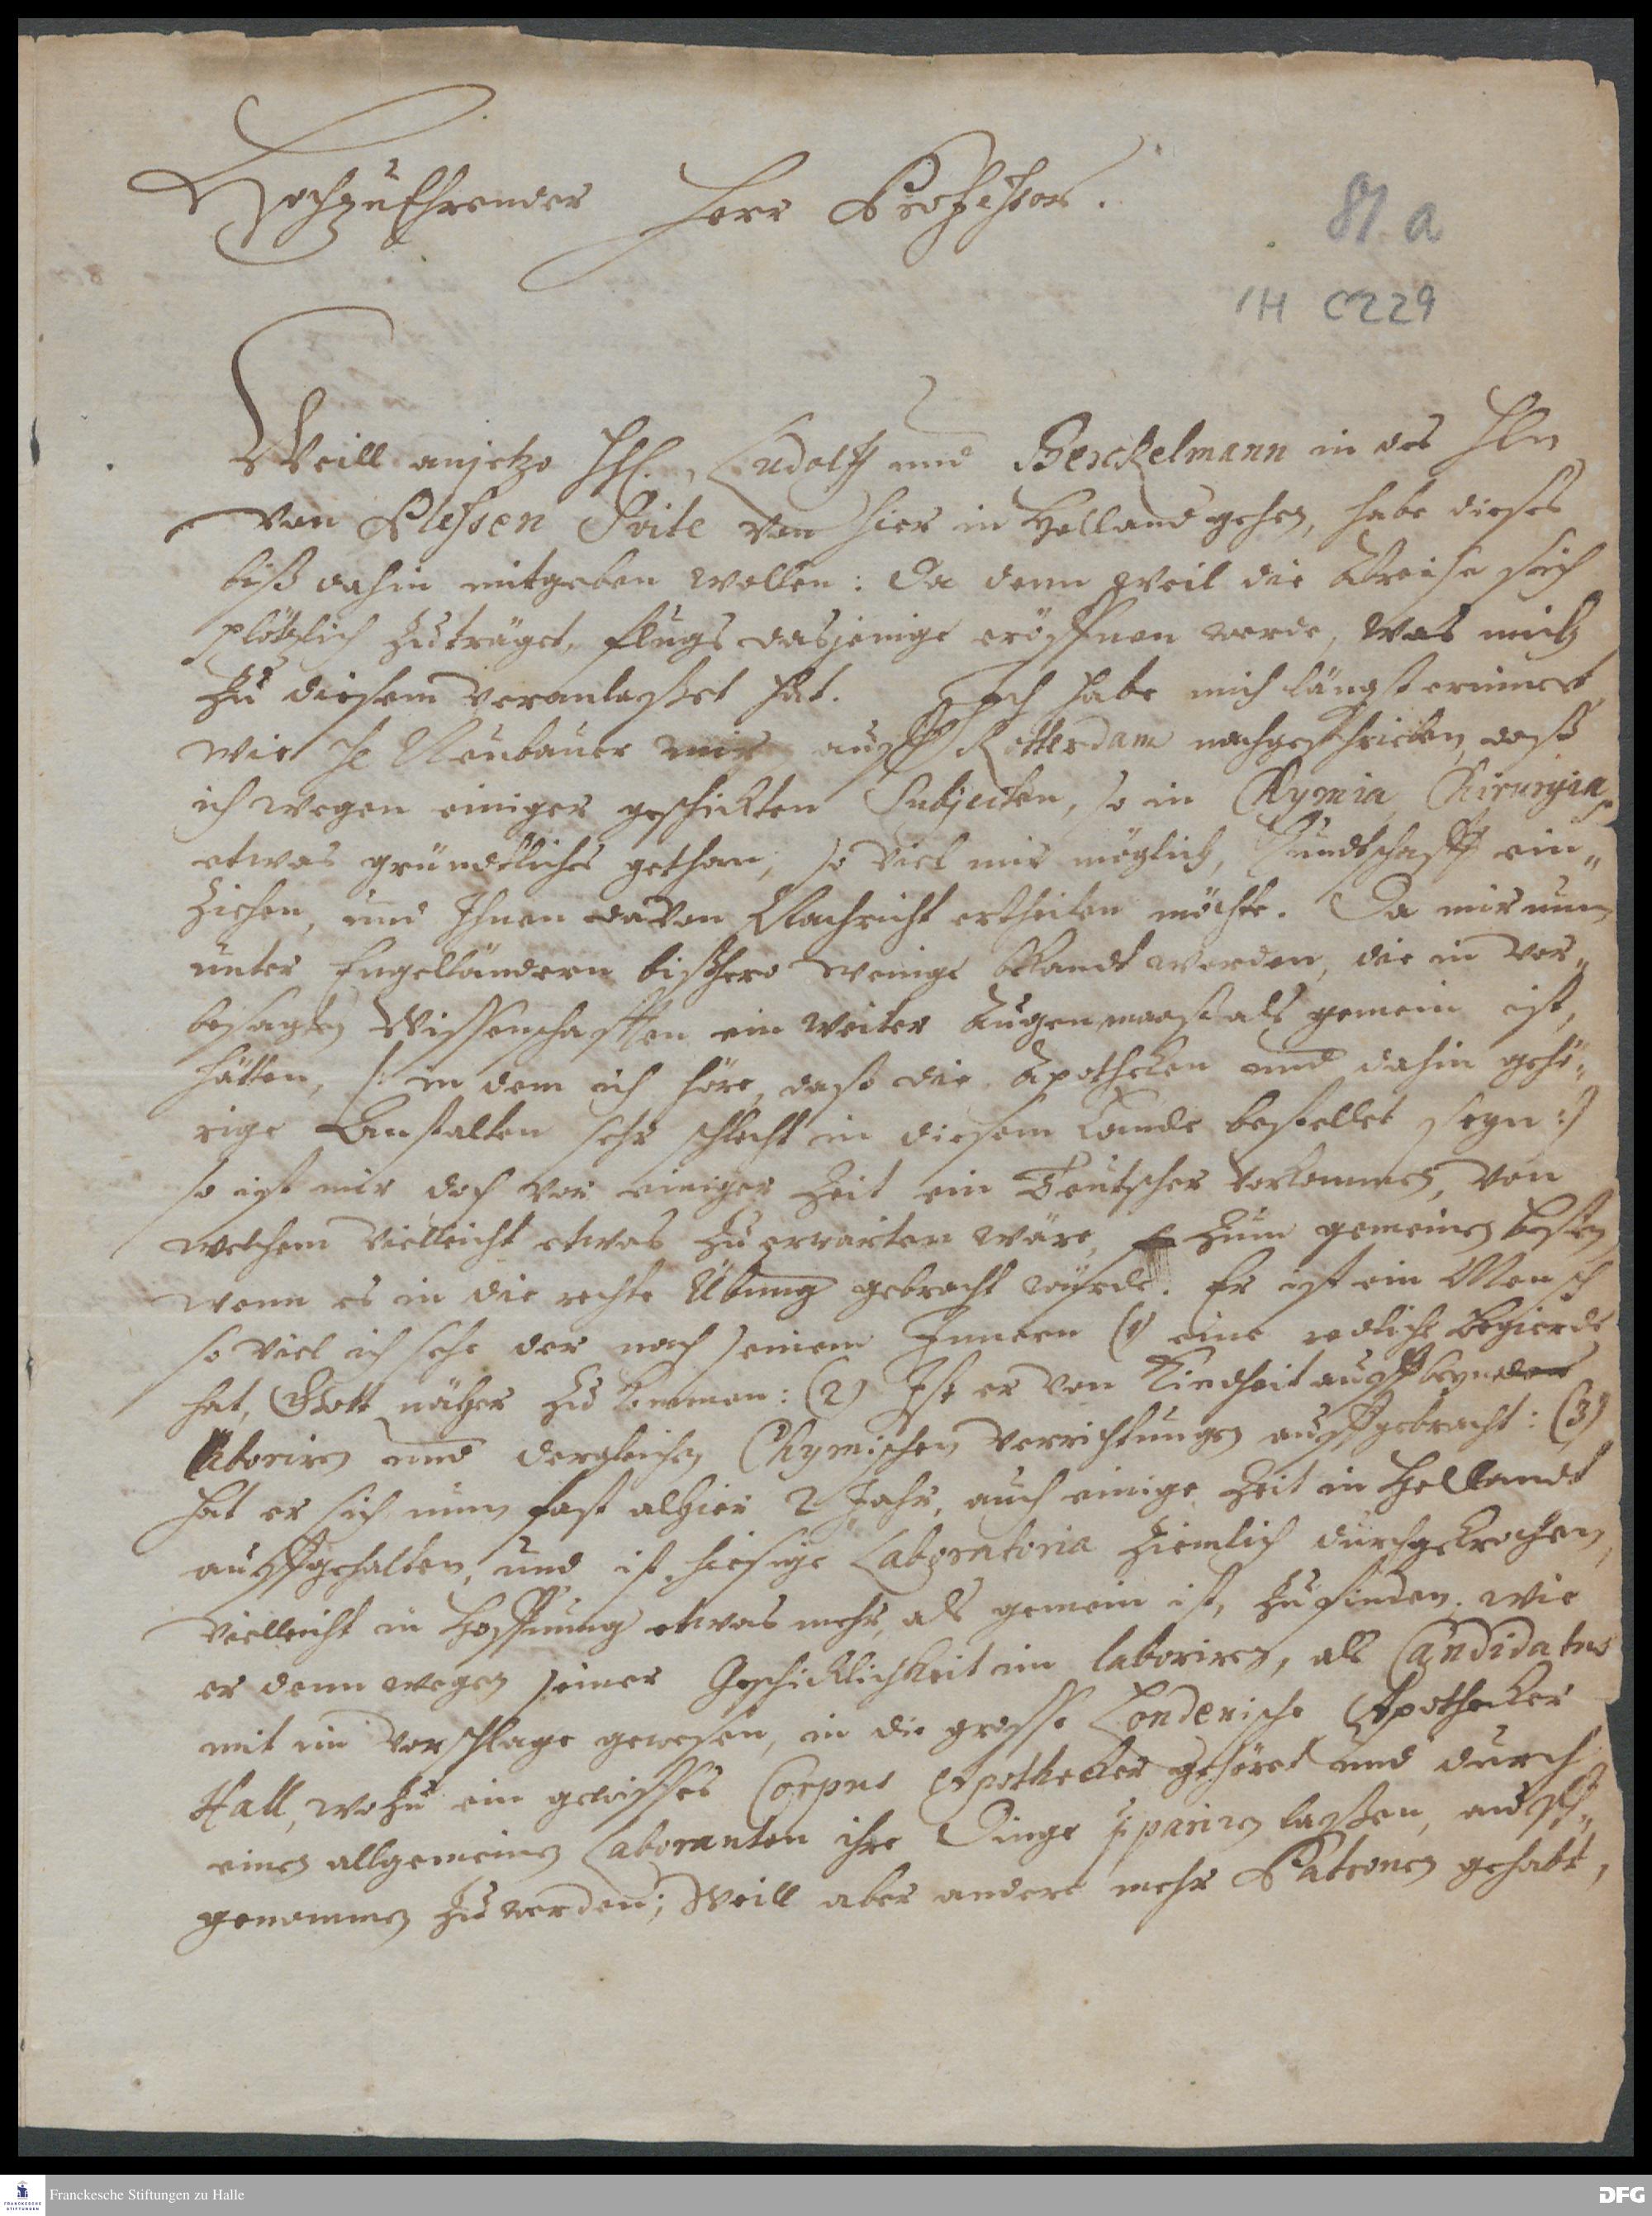 HochzuEhrender Herr Professor.
81 a
1H C229
Weill anjetzo HH. Ludolff und Berckelmann in des Hln
von Plessen Svite von hier in Holland gehen, habe dieses
biß dahin mitgeben wollen: Da denn weil die Abreise sich
plötzlich zuträget, flugs dasjenige eröffnen werde, was mich
zu diesem veranlasset hat. Ich habe mich längst erinnert
wie H Neubauer mir auß Rotterdam nachgeschrieben, daß
ich wegen einiger geschickten Subjecten, so in Chymia, Chirurgia
etwas gründtliches gethan, so viel mir möglich, Kundtschafft ein„
ziehen, und Ihnen davon Nachricht ertheilen möchte. Da mir nun
unter Engelländern bißhero wenige bekandt worden, die in vor„
besagten Wissenschafften ein weiter Augenmaaß als gemein ist,
hätten, /: in dem ich höre, daß die Apothecken und dahin gehö„
rige Anstalten sehr schlecht in diesem Lande bestellet seyn :/
so ist mir doch vor einiger Zeit ein Teutscher vorkommen, von
welchem vielleicht etwas zu erwarten wäre, zum gemeinen besten
wenn es in die rechte Übung gebracht würde. Er ist ein Mensch
so viel ich sehe der nach seinem Innern (1) eine redliche Begierde
hat, Gott näher zu kommen: (2) Ist er von Kindheit auff beym
laboriren und dergleichen Chymischen Verrichtungen auffgebracht: (3)
hat er sich nun fast alhier 2 Jahr, auch einige Zeit in Hollandt
auffgehalten, und ist hiesige Laboratoria ziemlich durchgekrochen,
vielleicht in Hoffnung etwas mehr, als gemein ist, zu finden. wie
er denn wegen seiner Geschicklichkeit im laboriren, als Candidatus
mit im Vorschlage gewesen, in die grosse Londenische Apothecker
Hall, wozu ein gewisses Corpus Apothecker gehöret und durch
einen allgemeinen Laboranten ihre Dinge lassen, auff„
genommen zu werden; Weill aber andere mehr Patronen gehabt,
Franckesche Stiftungen zu Halle
DFG